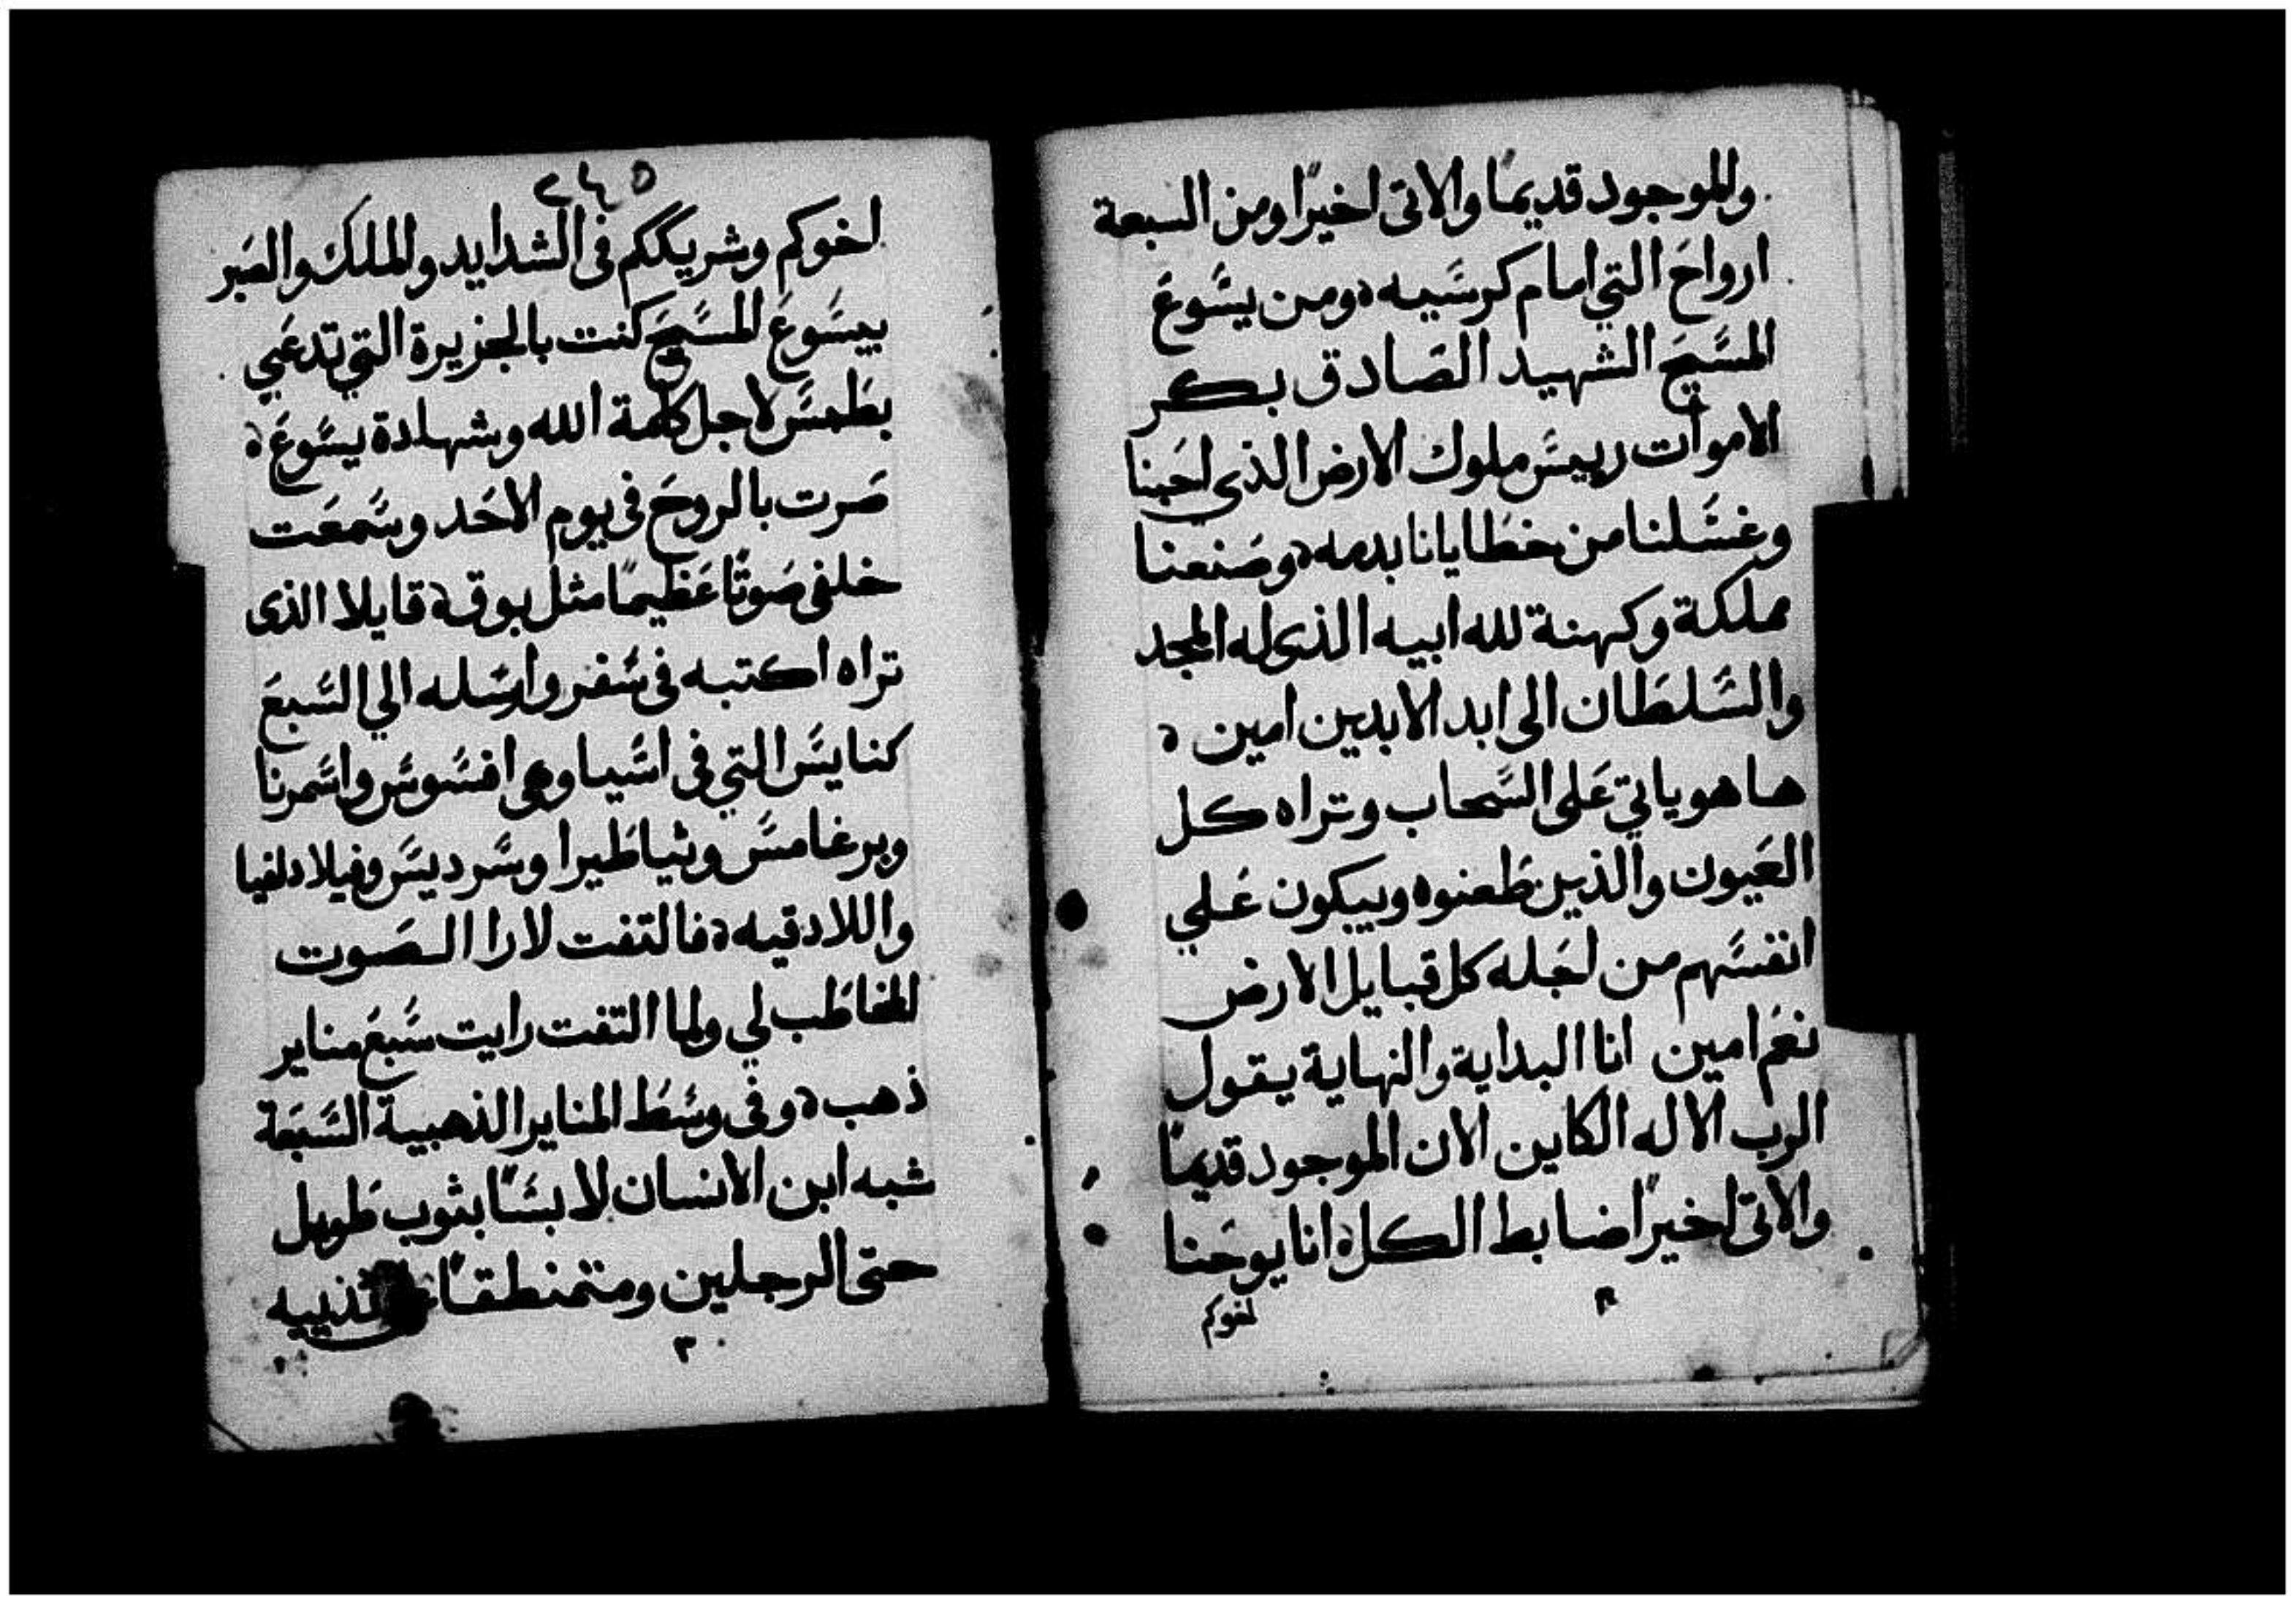 والموجود قديمًا والاتى اخيرًا ومن السبعة
ارواح التي امام كرسيه ومن يسوع
المسيح الشهيد الصادق بكر
الاموات رييس ملوك الارض الذي احبنا
وغسلنا من خطايانا بدمه وصنعنا
مملكة وكهنة لله ابيه الذى له المجد
والسلطان الى ابد الابدين امين
ها هو ياتي على السحاب وتراه كل
العيون والذين طعنوه ويبكون علي
انفسهم من اجله كل قبايل الارض
نعم امين انا البداية والنهاية يقول
الرب الاله الكاين الان الموجود قديمًا
والاتى اخيرًا ضابط الكل انا يوحنا
اخوكم
٢٤٥
اخوكم وشريككم فى الشدايد والملك والصبر
بيسوع المسيح كنت بالجزيرة التي تدعي
بطمس لاجل كلمة الله وشهادة يسوع
صرت بالروح فى يوم الاحد وسمعت
خلفى صوتًا عظيمًا مثل بوق قايلا الذى
تراه اكتبه فى سفر وارسله الي السبع
كنايس التي فى اسيا وهى افسوس واسمرنا
وبرغامس وثياطيرا وسرديس وفيلادلفيا
واللادقيه فالتفت لارا الصوت
المخاطب لي ولما التفت رايت سبع مناير
ذهب وفى وسط المناير الذهبية السبعة
شبه ابن الانسان لابسًا بثوب طويل
حتى الرجلين ومتمنطقًا ثدييه
٣